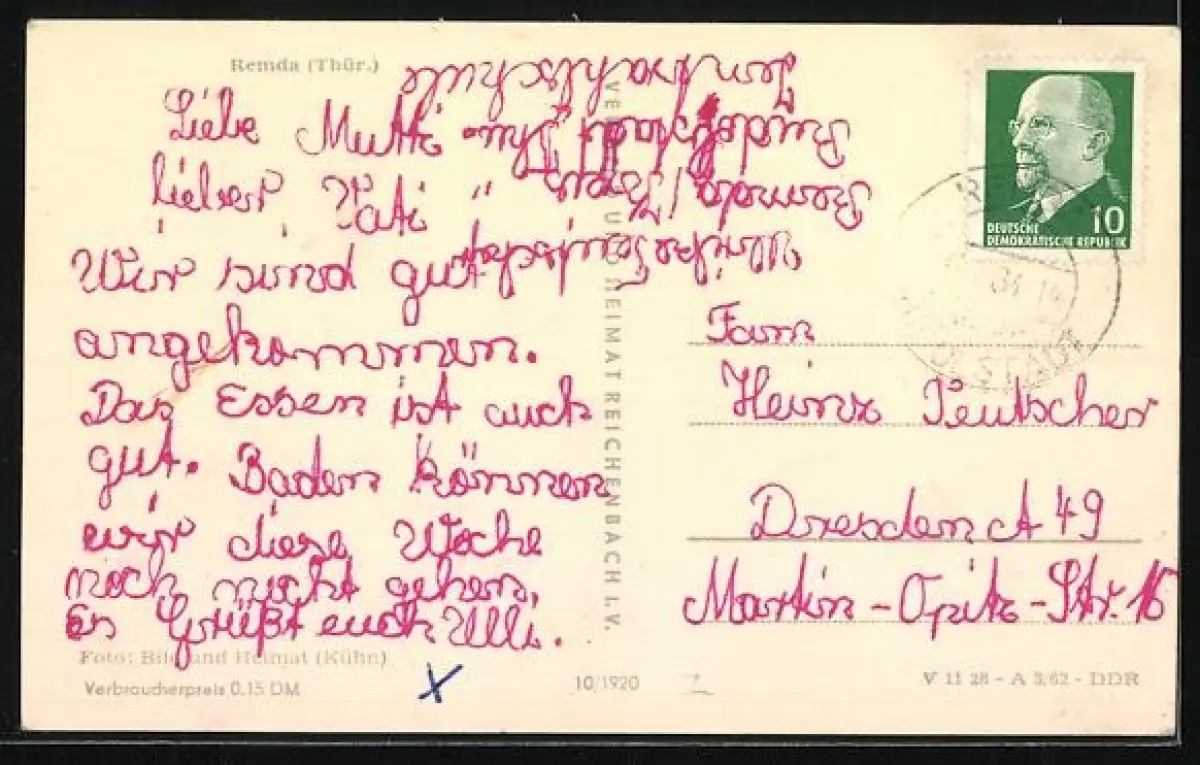 Remda (Thür.)
Liebe Mutti
lieber Vati
Wir sind gut
angekommen.
Das Essen ist auch
gut. Baden können
wir diese Woche
noch nicht gehen.
Es Grüßt euch Ulli.
Foto: Bild und Heimat (Kühn)
Verbraucherpreis 0,15 DM
VERLAG BILD UND HEIMAT REICHENBACH I. V.
10/1920
DEUTSCHE
DEMOKRATISCHE REPUBLIK
10
Fam
Heinz Teutscher
Dresden A 49
Martin-Opitz-Str. 16
V 11 28 - A 3/62 - DDR